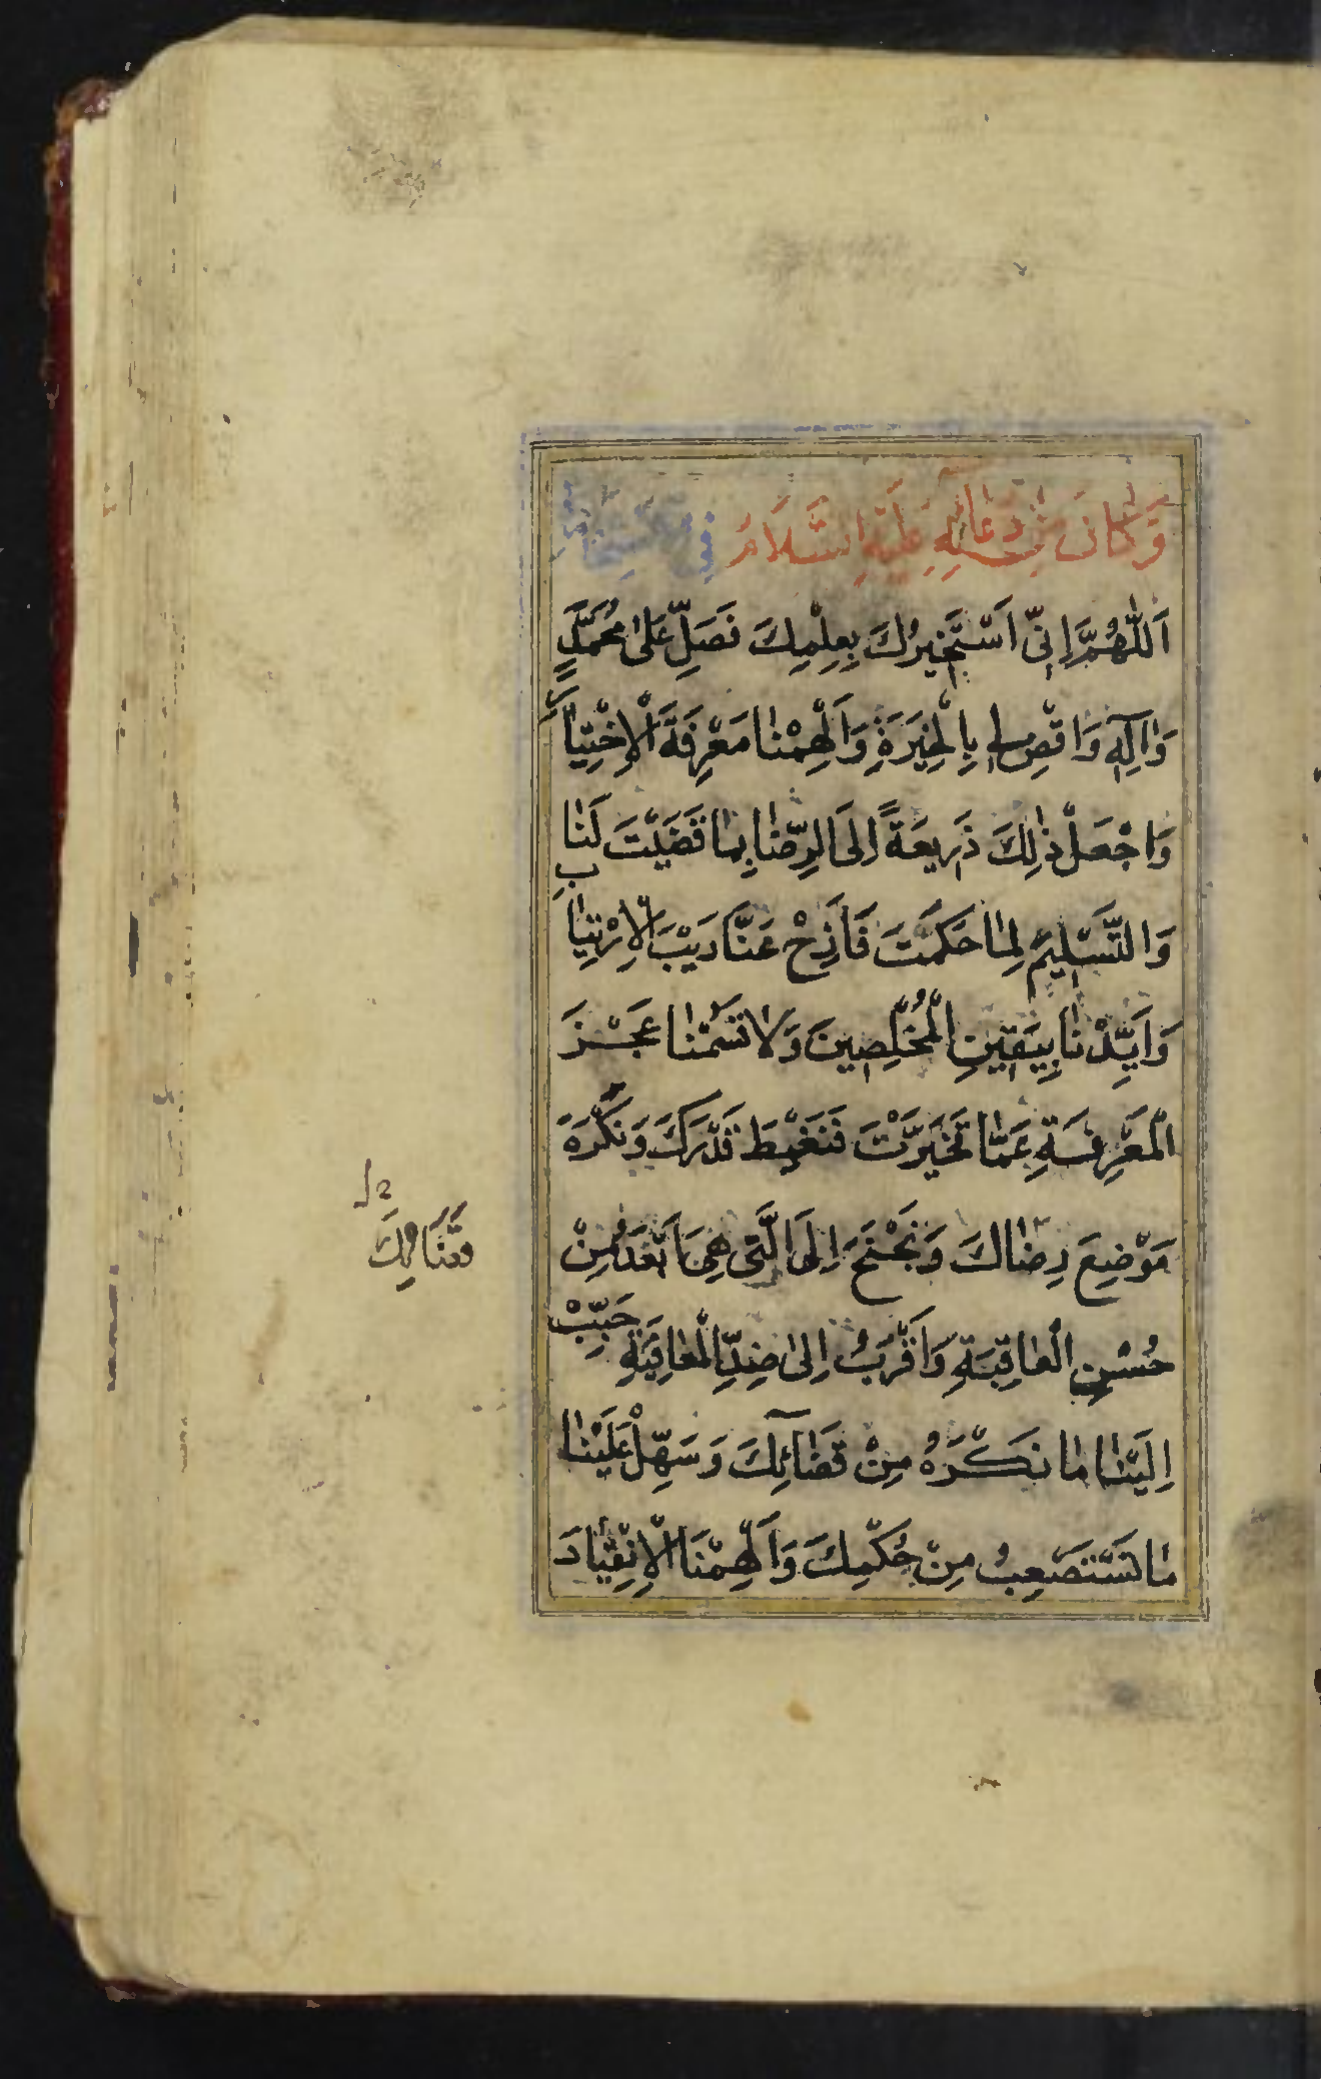 وَكَانَ مِنْ دُعَائِهِ عَلَيْهِ السَّلَامُ فِي
اَللّٰهُمَّ اِنّى اَسْتَخيرُكَ بِعِلْمِكَ فَصَلِّ عَلىٰ مُحَمَّدٍ
وَاٰلِهِ وَاقْضِ لي بِالْخِيَرَةِ وَاَلْهِمْنٰا مَعْرِفَةَ الْاِخْتِيٰارِ
وَاجْعَلْ ذٰلِكَ ذَريعَةً اِلَى الرِّضٰا بِمٰا قَضَيْتَ لَنٰا
وَالتَّسْليمِ لِمٰا حَكَمْتَ فَاَزِحْ عَنّٰا رَيْبَ الْاِرْتِيٰابِ
وَاَيِّدْنٰا بِيَقينِ الْمُخْلِصينَ وَلٰا تَسُمْنٰا عَجْزَ
الْمَعْرِفَةِ عَمّٰا تَخَيَّرْتَ فَنَغْمِطَ قَدْرَكَ وَنَكْرَهَ
مَوْضِعَ رِضٰاكَ وَنَجْنَحَ اِلَى الَّتى هِيَ اَبْعَدُ مِنْ
حُسْنِ الْعٰاقِبَةِ وَاَقْرَبُ اِلىٰ ضِدِّ الْعٰافِيَةِ حَبِّبْ
اِلَيْنٰا مٰا نَكْرَهُ مِنْ قَضٰائِكَ وَسَهِّلْ عَلَيْنٰا
مٰا نَسْتَصْعِبُ مِنْ حُكْمِكَ وَاَلْهِمْنَا الْاِنْقِيٰادَ